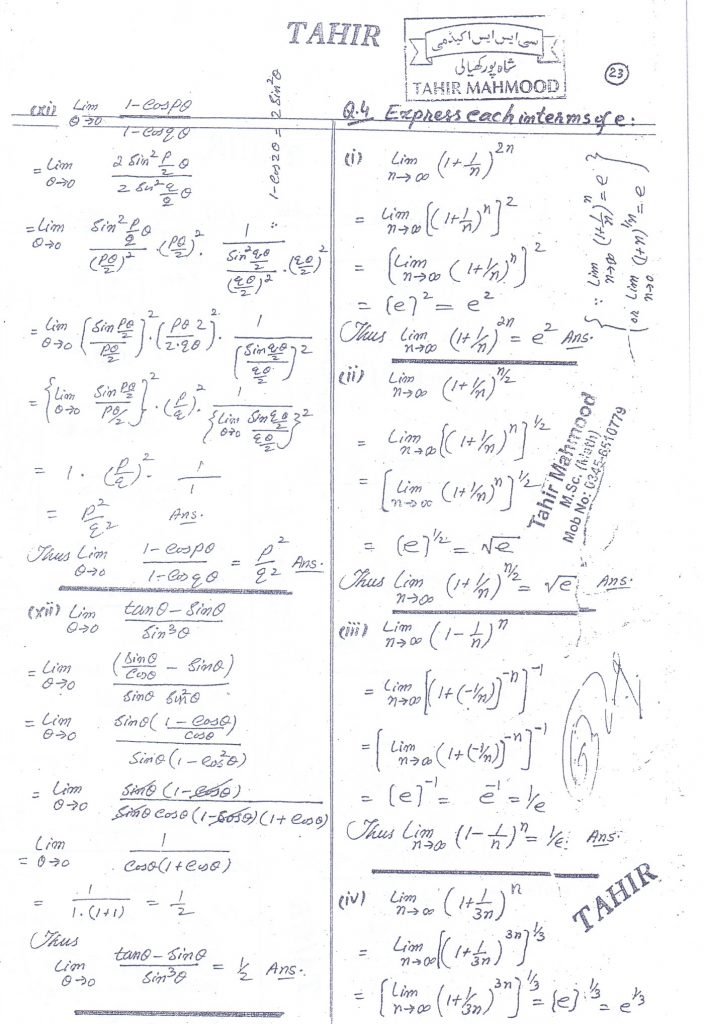 TAHIR
سی ایس ایس اکیڈمی
شاہ پور کھیالی
TAHIR MAHMOOD
23
(xi) Lim θ→0 (1-Cospθ)/(1-Cosqθ)
1-Cos2θ = 2Sin²θ
= Lim θ→0 (2 Sin² p/2 θ)/(2 Sin² q/2 θ)
= Lim θ→0 (Sin² p/2 θ)/(pθ/2)² · (pθ/2)² · 1/((Sin² qθ/2)/(qθ/2)² · (qθ/2)²)
= Lim θ→0 [(Sin pθ/2)/(pθ/2)]² · (pθ 2/2·qθ)² · 1/[(Sin qθ/2)/(qθ/2)]²
= {Lim θ→0 (Sin pθ/2)/(pθ/2)}² · (p/q)² · 1/{Lim θ→0 (Sin qθ/2)/(qθ/2)}²
= 1 · (p/q)² · 1/1
= p²/q² Ans.
Thus Lim θ→0 (1-Cospθ)/(1-Cosqθ) = p²/q² Ans.
(xii) Lim θ→0 (tanθ-Sinθ)/(Sin³θ)
= Lim θ→0 (Sinθ/Cosθ - Sinθ)/(Sinθ Sin²θ)
= Lim θ→0 Sinθ((1-Cosθ)/Cosθ)/(Sinθ(1-Cos²θ))
= Lim θ→0 Sinθ(1-Cosθ)/(Sinθ Cosθ(1-Cosθ)(1+Cosθ))
= Lim θ→0 1/(Cosθ(1+Cosθ))
= 1/(1·(1+1)) = 1/2
Thus
Lim θ→0 (tanθ-Sinθ)/(Sin³θ) = 1/2 Ans.
Q.4 Express each in terms of e:
(i) Lim n→∞ (1+1/n)^2n
= Lim n→∞ [(1+1/n)^n]^2
= [Lim n→∞ (1+1/n)^n]^2
= [e]² = e²
{∵ Lim n→∞ (1+1/n)^n = e}
(or Lim n→0 (1+n)^1/n = e
Thus Lim n→∞ (1+1/n)^2n = e² Ans.
(ii) Lim n→∞ (1+1/n)^n/2
= Lim n→∞ [(1+1/n)^n]^1/2
= [Lim n→∞ (1+1/n)^n]^1/2
= [e]^1/2 = √e
Thus Lim n→∞ (1+1/n)^n/2 = √e Ans.
Tahir Mahmood
M.Sc. (Math)
Mob No: 0345-6510779
(iii) Lim n→∞ (1-1/n)^n
= Lim n→∞ [(1+(-1/n))^-n]^-1
= [Lim n→∞ (1+(-1/n))^-n]^-1
= [e]^-1 e^-1 = 1/e
Thus Lim n→∞ (1-1/n)^n = 1/e. Ans.
TAHIR
(iv) Lim n→∞ (1+1/3n)^n
= Lim n→∞ [(1+1/3n)^3n]^1/3
= [Lim n→∞ (1+1/3n)^3n]^1/3 = [e]^1/3 = e^1/3